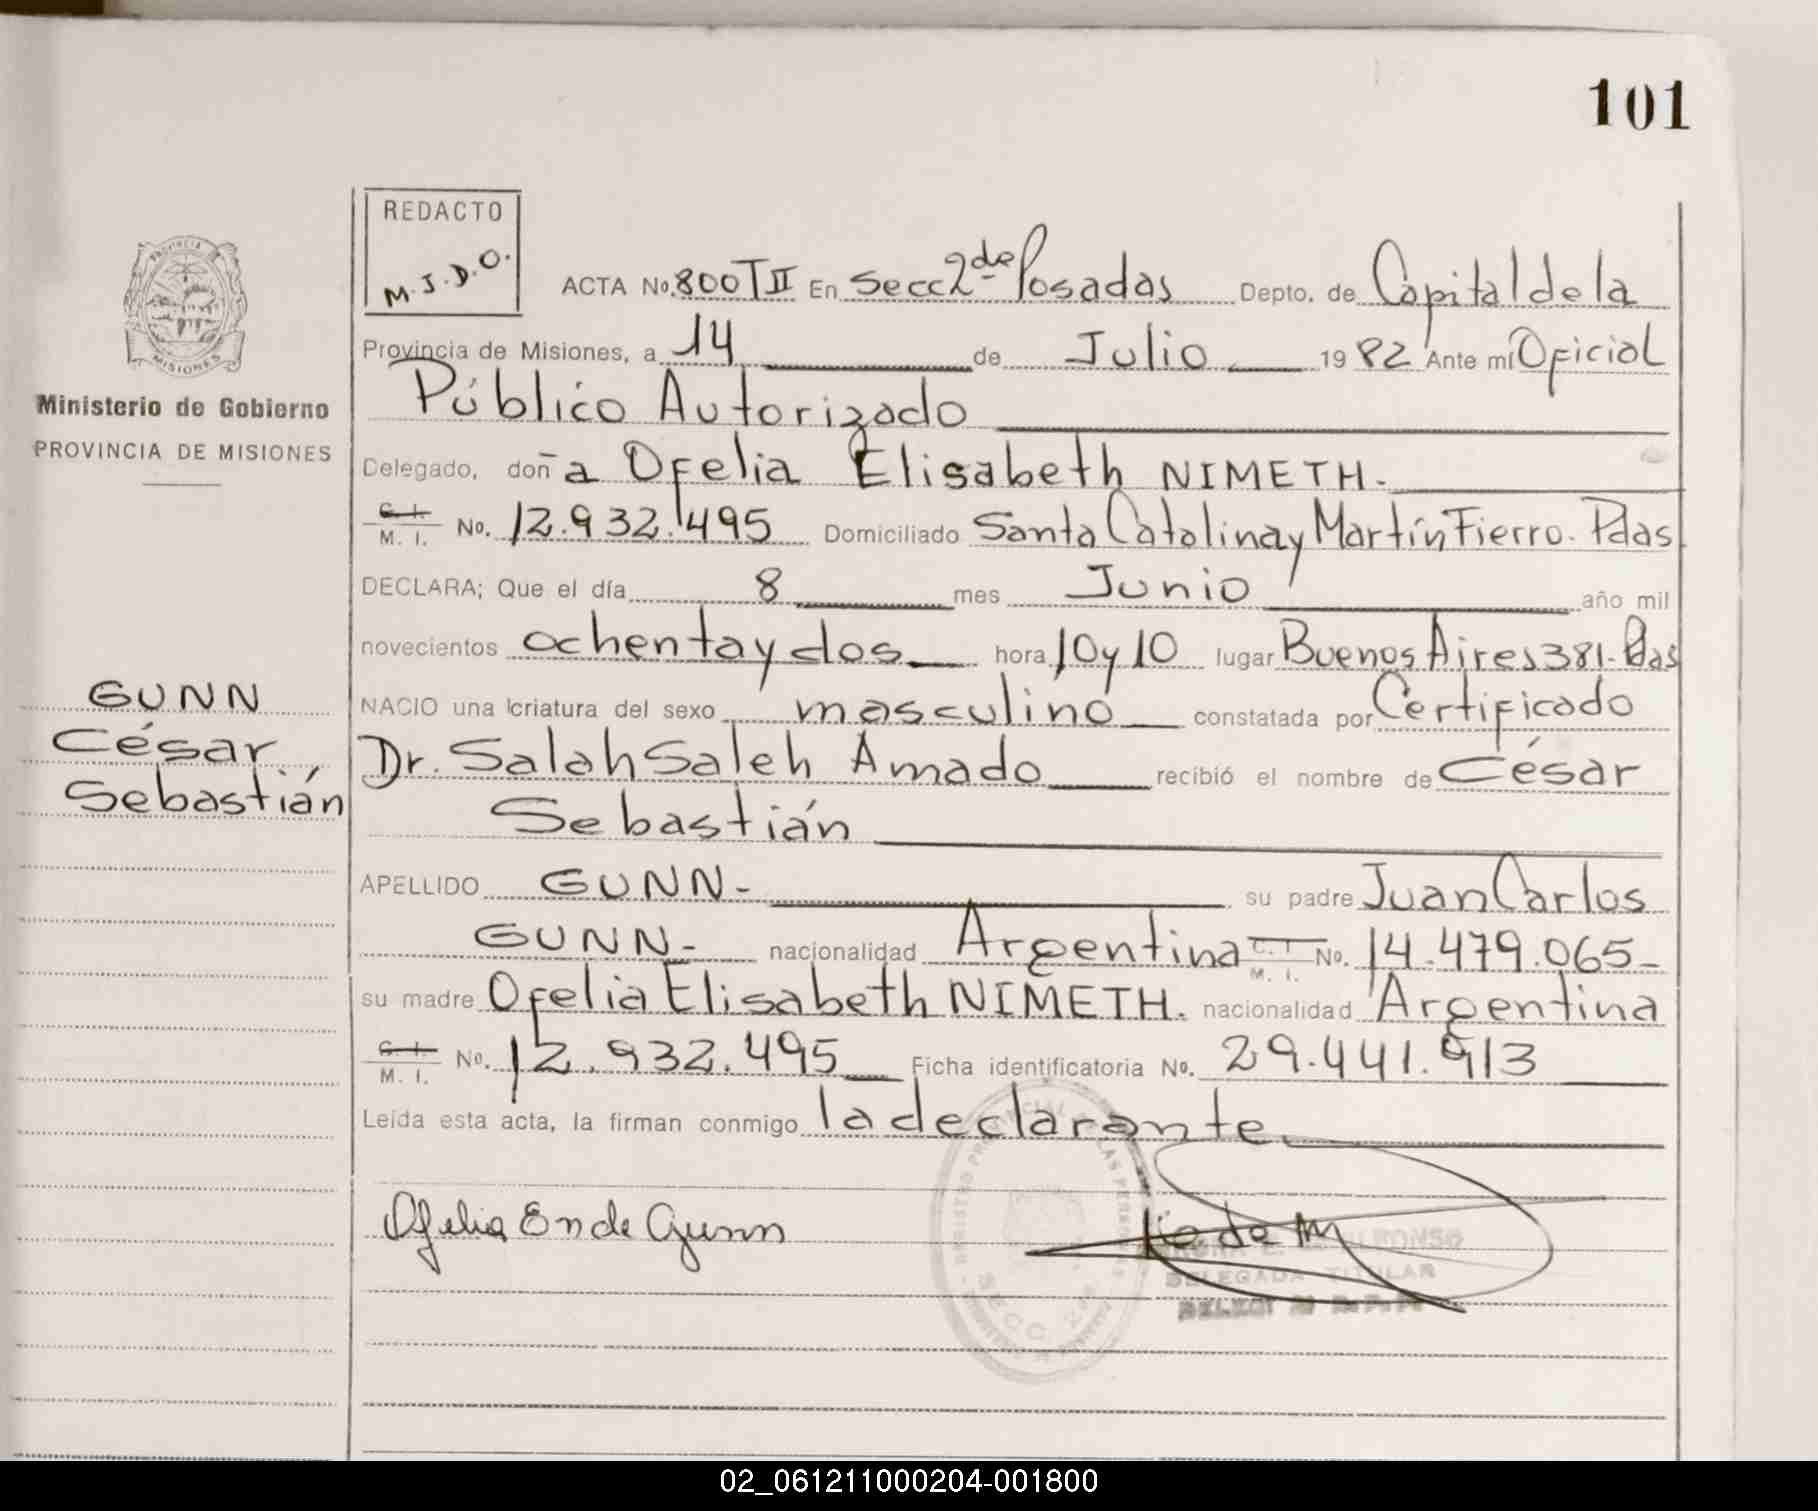 101
REDACTO
M.J.D.O.
PROVINCIA
MISIONES
Ministerio de Gobierno
PROVINCIA DE MISIONES
ACTA No. 800 T II En Secc 2da de Posadas Depto. de Capital de la
Provincia de Misiones, a 14 de Julio 1982 Ante mí Oficial
Público Autorizado
Delegado, doña Ofelia Elisabeth NIMETH.
C. I. M. I. No. 12.932.495 Domiciliado Santa Catalina y Martín Fierro. Pdas
DECLARA; Que el día 8 mes Junio año mil
novecientos ochenta y dos hora 10 y 10 lugar Buenos Aires 381-Pdas
NACIO una criatura del sexo masculino constatada por Certificado
Dr. Salah Saleh Amado recibió el nombre de César
Sebastián
APELLIDO GUNN- su padre Juan Carlos
GUNN- nacionalidad Argentina C. I. M. I. No. 14.479.065-
su madre Ofelia Elisabeth NIMETH. nacionalidad Argentina
C. I. M. I. No. 12.932.495 Ficha identificatoria No. 29.441.913
Leída esta acta, la firman conmigo la declarante
GUNN
César
Sebastián
Ofelia E n de Gunn
DELEGADA TITULAR
SECC 2da
02_061211000204-001800